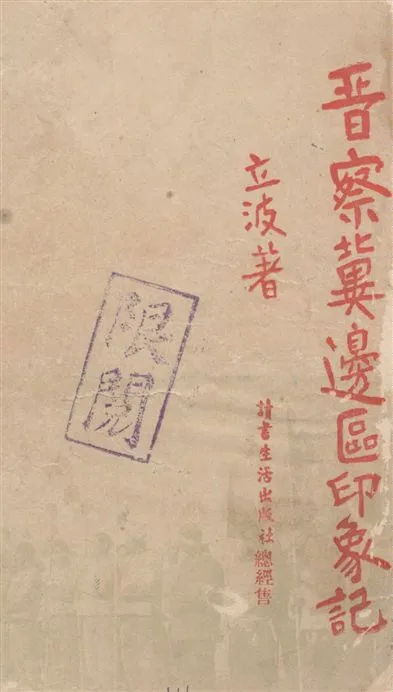 晋察冀邊區印象記
立波著
讀書生活出版社總經售
限閱